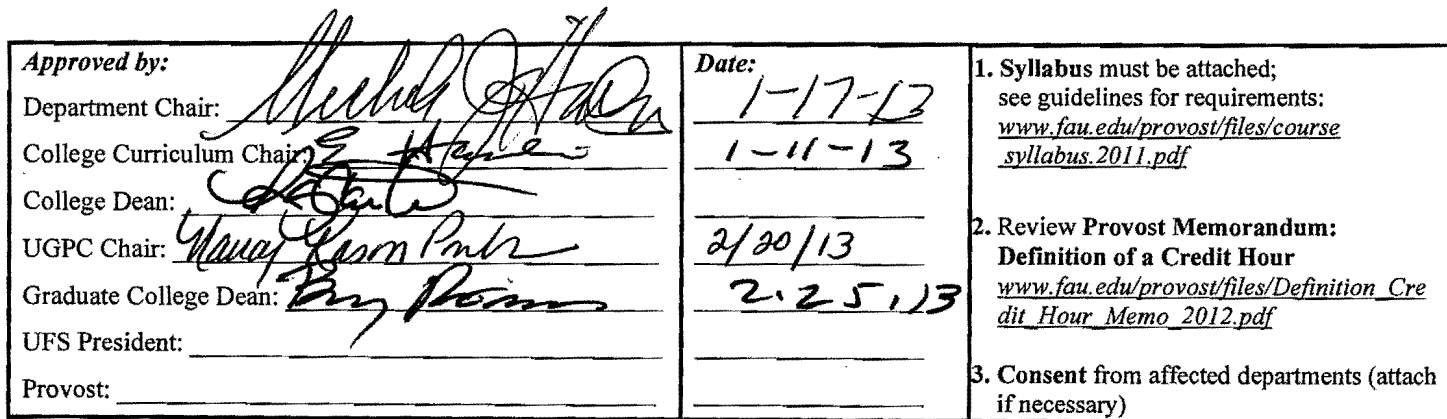 Approved by:
Date:
Department Chair:
1-17-13
College Curriculum Chair:
1-11-13
College Dean:
UGPC Chair:
2/20/13
Graduate College Dean:
2.25.13
UFS President:
Provost:
1. Syllabus must be attached;
see guidelines for requirements:
www.fau.edu/provost/files/course
syllabus.2011.pdf
2. Review Provost Memorandum:
Definition of a Credit Hour
www.fau.edu/provost/files/Definition_Cre
dit_Hour_Memo_2012.pdf
3. Consent from affected departments (attach
if necessary)